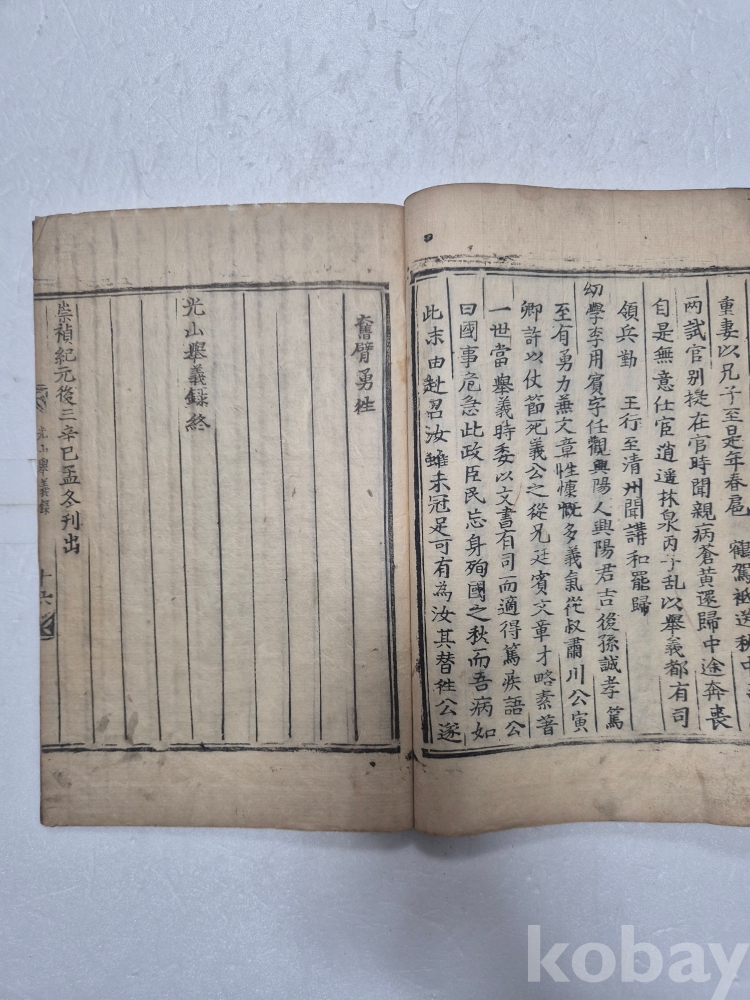 重妻以兄子至是年春扈　鶴駕祗送秋中
兩試官別提在官時聞親病蒼黃還歸中途奔喪
自是無意仕宦逍遥林泉丙子亂以擧義都有司
領兵勤　王行至清州聞講和罷歸
幼學李用賓字任觀興陽人興陽君吉後孫誠孝篤
至有勇力兼文章性慷慨多義氣從叔肅川公寅
卿許以仗節死義公之從兄廷賓文章才略素著
一世當擧義時委以文書有司而適得篤疾語公
曰國事危急此政臣民忘身殉國之秋而吾病如
此末由赴召汝雖未冠足可有為汝其替徃公遂
奮臂勇徃
光山擧義錄終
崇禎紀元後三辛巳孟冬刊出
光山擧義錄
十六
kobay